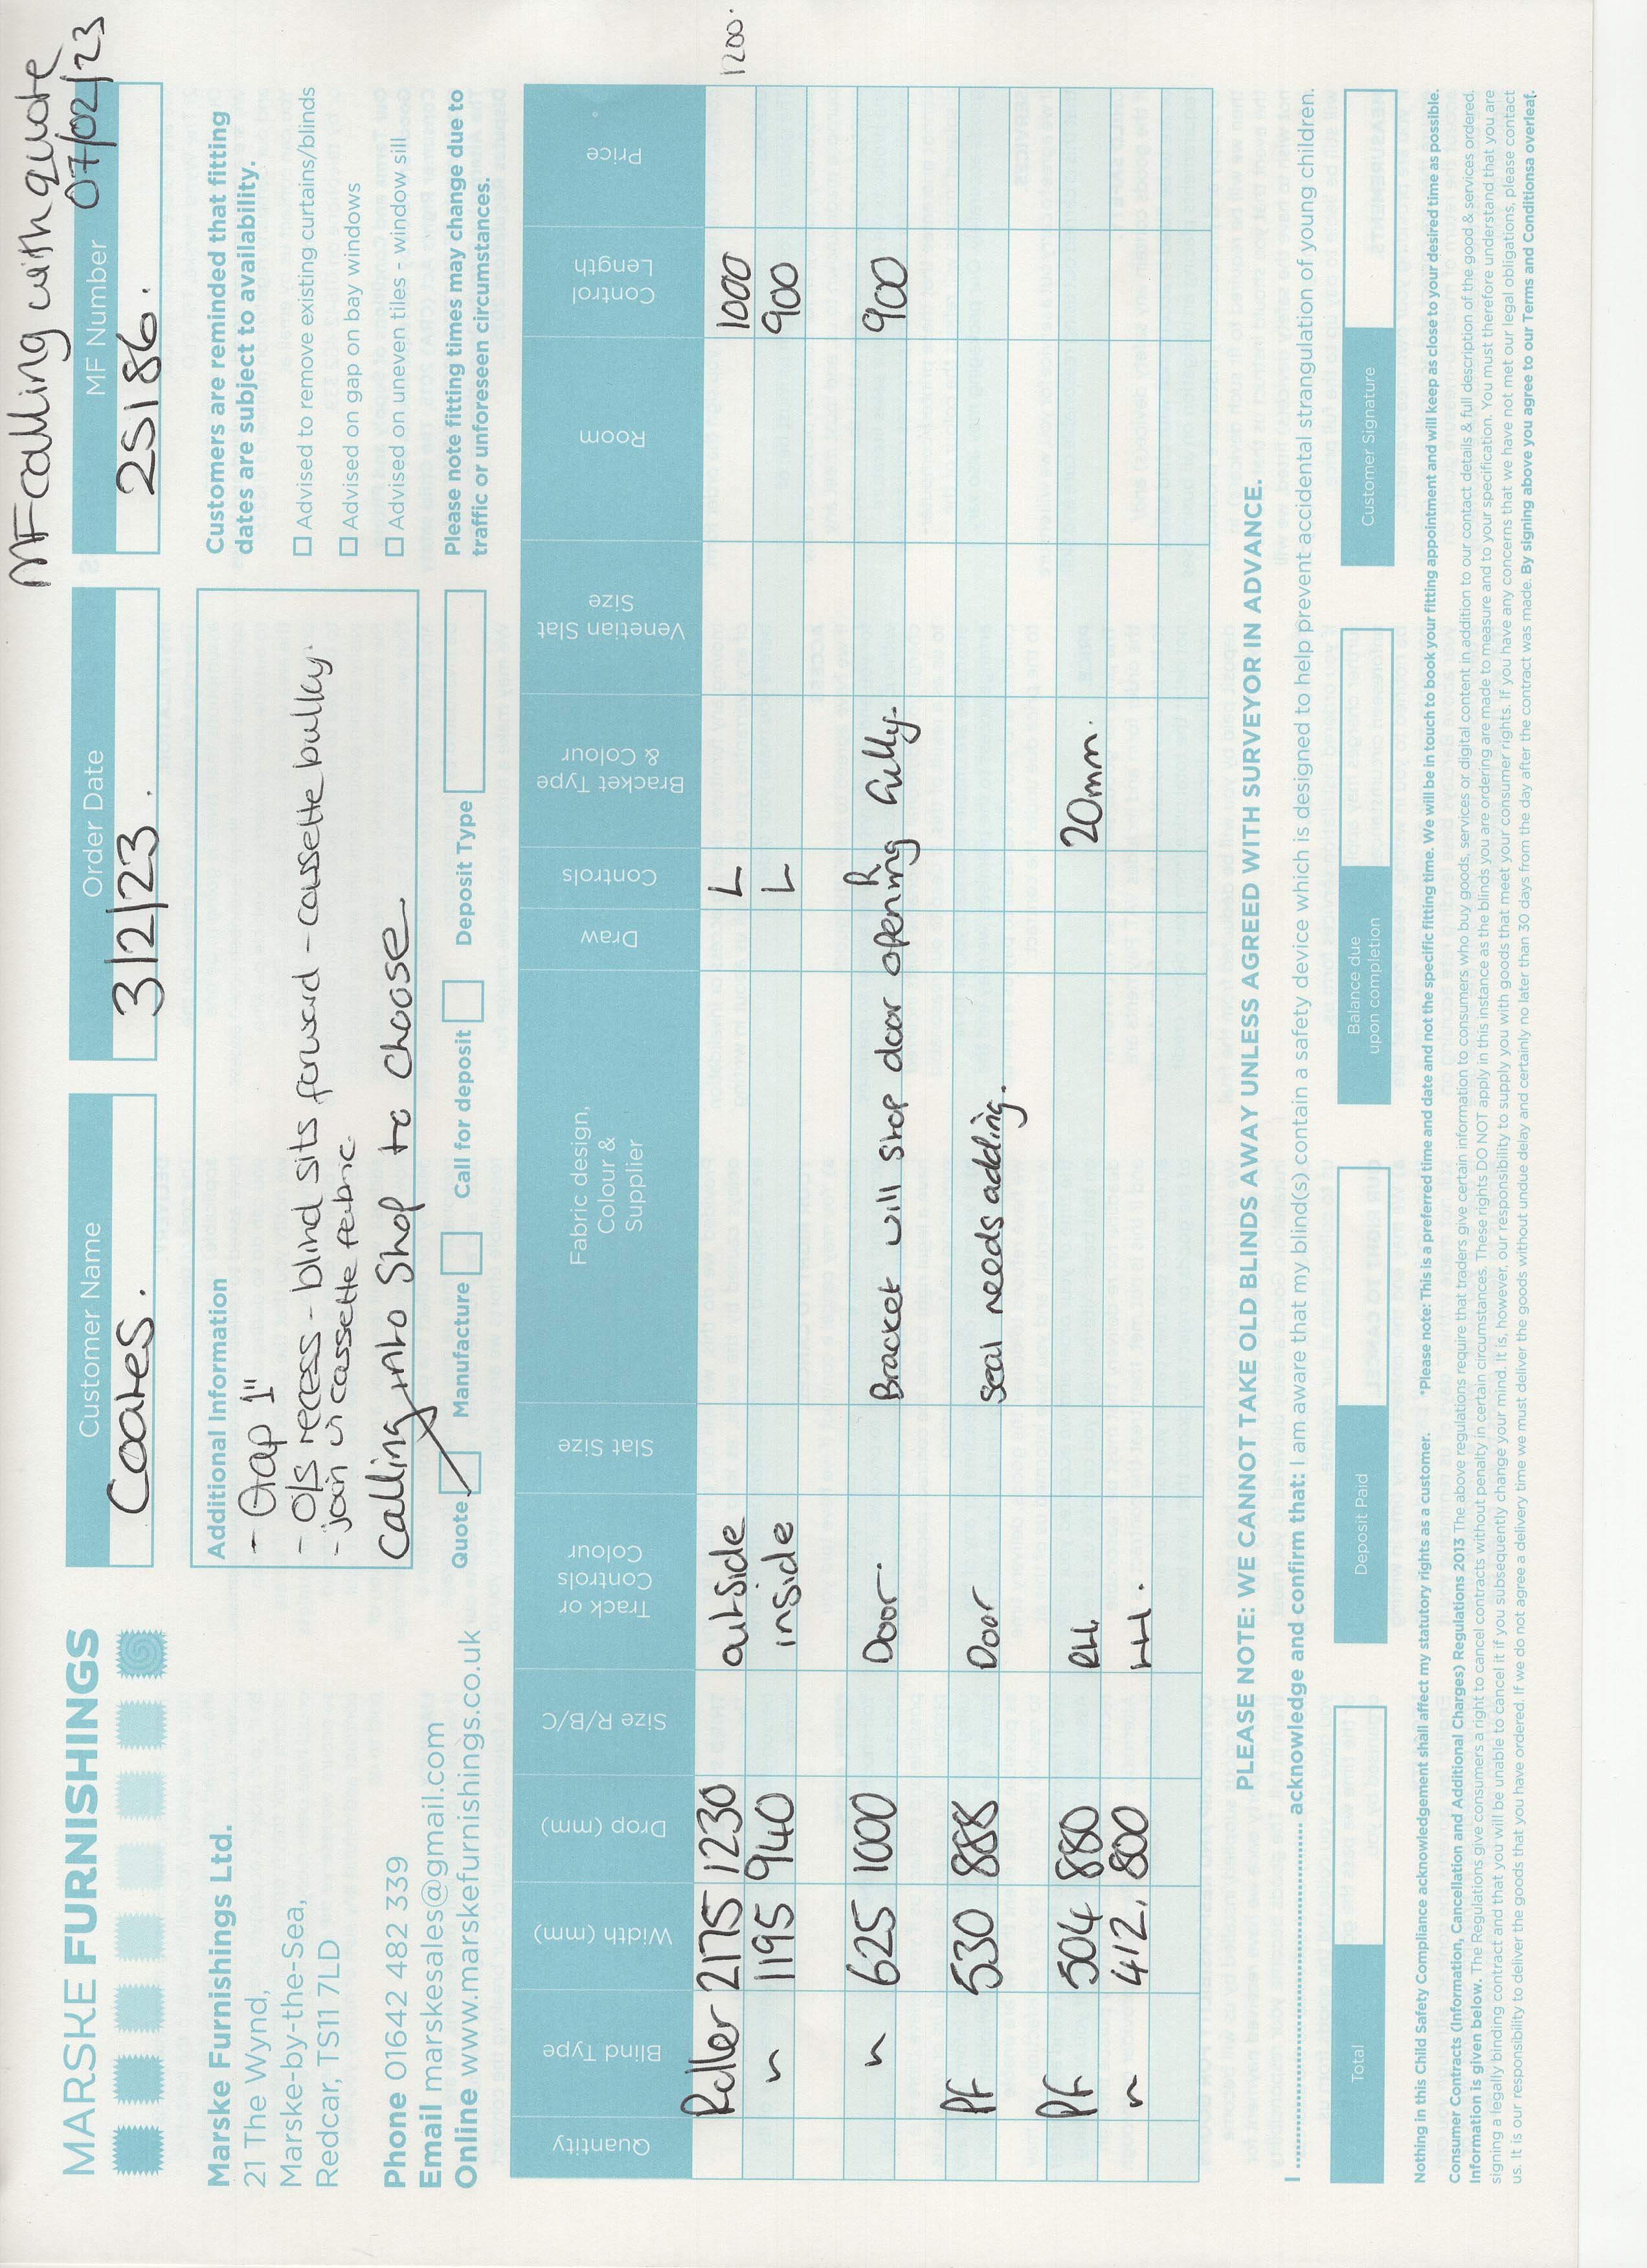 MF calling with quote
07/02/23
MARSKE FURNISHINGS
Customer Name
Coates.
Order Date
3/2/23.
MF Number
25186.
Marske Furnishings Ltd.
21 The Wynd,
Marske-by-the-Sea,
Redcar, TS11 7LD
Phone 01642 482 339
Email marskesales@gmail.com
Online www.marskefurnishings.co.uk
Additional Information
- Gap 1"
- O/S recess - blind sits forward - cassette bulky.
- join in cassette fabric
Calling into Shop to choose.
Quote
Manufacture
Call for deposit
Deposit Type
Customers are reminded that fitting
dates are subject to availability.
☐ Advised to remove existing curtains/blinds
☐ Advised on gap on bay windows
☐ Advised on uneven tiles - window sill
Please note fitting times may change due to
traffic or unforeseen circumstances.
Quantity
Blind Type
Width (mm)
Drop (mm)
Size R/B/C
Track or
Controls
Colour
Slat Size
Fabric design,
Colour &
Supplier
Draw
Controls
Bracket Type
& Colour
Venetian Slat
Size
Room
Control
Length
Price
Roller 2175 1230 outside L 1000 1200.
" 1195 940 inside L 900
" 625 1000 Door. R 900
Bracket will stop door opening fully.
PF 530 888 Door
Seal needs adding.
PF 504 880 RH. 20mm.
" 412. 800 LH.
PLEASE NOTE: WE CANNOT TAKE OLD BLINDS AWAY UNLESS AGREED WITH SURVEYOR IN ADVANCE.
I .......... acknowledge and confirm that: I am aware that my blind(s) contain a safety device which is designed to help prevent accidental strangulation of young children.
Total
Deposit Paid
Balance due
upon completion
Customer Signature
Nothing in this Child Safety Compliance acknowledgement shall affect my statutory rights as a customer. *Please note: This is a preferred time and date and not the specific fitting time. We will be in touch to book your fitting appointment and will keep as close to your desired time as possible.
Consumer Contracts (Information, Cancellation and Additional Charges) Regulations 2013 The above regulations require that traders give certain information to consumers who buy goods, services or digital content in addition to our contact details & full description of the good & services ordered.
Information is given below. The Regulations give consumers a right to cancel contracts without penalty in certain circumstances. These rights DO NOT apply in this instance as the blinds you are ordering are made to measure and to your specification. You must therefore understand that you are
signing a legally binding contract and that you will be unable to cancel it if you subsequently change your mind. It is, however, our responsibility to supply you with goods that meet your consumer rights. If you have any concerns that we have not met our legal obligations, please contact
us. It is our responsibility to deliver the goods that you have ordered. If we do not agree a delivery time we must deliver the goods without undue delay and certainly no later than 30 days from the day after the contract was made. By signing above you agree to our Terms and Conditionsa overleaf.